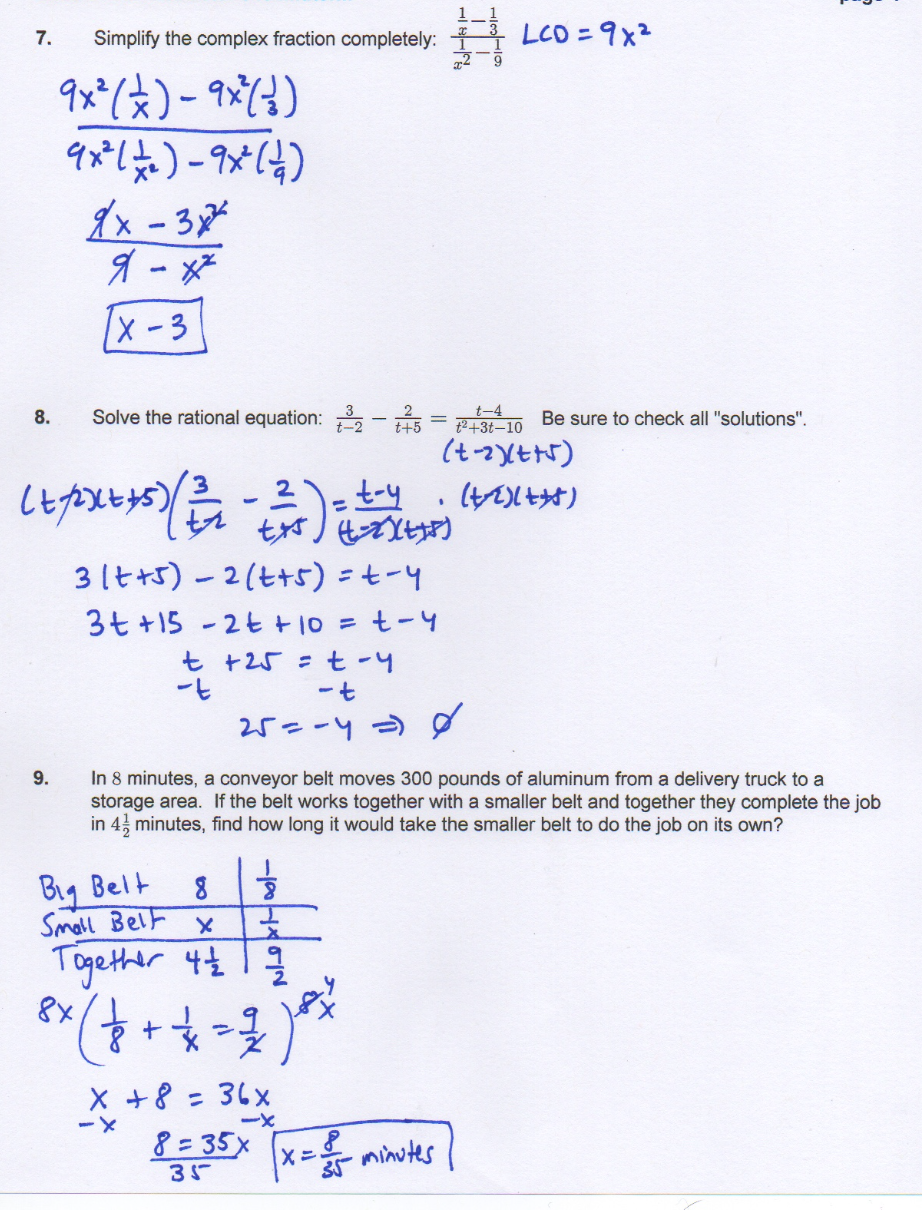 7. Simplify the complex fraction completely: (1/x − 1/3)/(1/x² − 1/9) LCD = 9x²
9x²(1/x) − 9x²(1/3)
9x²(1/x²) − 9x²(1/9)
9x − 3x²
9 − x²
x − 3
8. Solve the rational equation: 3/(t−2) − 2/(t+5) = (t−4)/(t²+3t−10) Be sure to check all "solutions".
(t−2)(t+5)
(t−2)(t+5)(3/(t−2) − 2/(t+5)) = (t−4)/((t−2)(t+5)) · (t−2)(t+5)
3(t+5) − 2(t+5) = t−4
3t +15 − 2t + 10 = t − 4
t + 25 = t − 4
−t −t
25 = −4 ⇒ ∅
9. In 8 minutes, a conveyor belt moves 300 pounds of aluminum from a delivery truck to a
storage area. If the belt works together with a smaller belt and together they complete the job
in 4½ minutes, find how long it would take the smaller belt to do the job on its own?
Big Belt 8 1/8
Small Belt x 1/x
Together 4½ 9/2
8x(1/8 + 1/x = 9/2)8x 4
x + 8 = 36x
−x −x
8 = 35x
35
x = 8/35 minutes